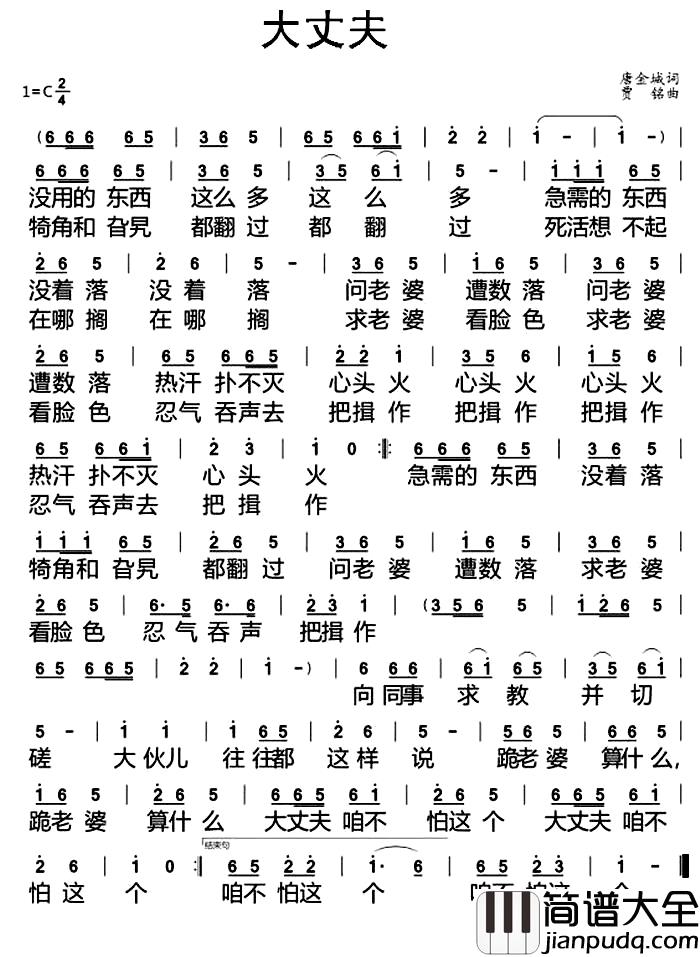 大丈夫
1=C 2/4
唐金城词
贾 铭曲
( 6 6 6 6 5 | 3 6 5 | 6 5 6 6 i | 2 2 | i - | i - ) |
6 6 6 6 5 | 3 6 5 | 3 5 6 i | 5 - | i i i 6 5 |
没用的 东西 这么 多 这 么 多 急需的 东西
犄角和 旮旯 都翻 过 都 翻 过 死活想 不起
2 6 5 | 2 6 | 5 - | 3 6 5 | i 6 5 | 3 6 5 |
没着 落 没 着 落 问老 婆 遭数 落 问老 婆
在哪 搁 在 哪 搁 求老 婆 看脸 色 求老 婆
2 6 5 | 6 5 6 6 5 | 2 2 i | 3 5 6 | i 5 6 |
遭数 落 热汗 扑不灭 心头 火 心头 火 心头 火
看脸 色 忍气 吞声去 把揖 作 把揖 作 把揖 作
6 5 6 6 i | 2 3 | i 0 :‖: 6 6 6 6 5 | 3 6 5 |
热汗 扑不灭 心 头 火 急需的 东西 没着 落
忍气 吞声去 把 揖 作
i i i 6 5 | 2 6 5 | 3 6 5 | i 6 5 | 3 6 5 |
犄角和 旮旯 都翻 过 问老 婆 遭数 落 求老 婆
2 6 5 | 6· 5 6· 6 | 2 3 i | ( 3 5 6 5 | i 2 6 5 |
看脸 色 忍 气 吞 声 把揖 作
6 5 6 6 5 | 2 2 | i - ) | 6 6 6 | 6 i 5 | 3 5 6 i |
向 同事 求 教 并 切
5 - | i i | i 6 5 | 2 6 5 - | 5 6 5 | 3 6 5 |
磋 大 伙儿 往 往都 这样 说 跪老 婆 算什 么,
i 6 5 | 2 6 5 | 6 6 5 6 i | 2 6 5 | 6 6 5 6 i |
跪老 婆 算什 么 大丈夫 咱不 怕这 个 大丈夫 咱不
结束句
2 6 | i 0 :‖ 6 5 2 2 | i· 6 | 6 5 2 3 | i
怕 这 个 咱不 怕这 个 咱不 怕这 个
简谱大全
jianpudq.com